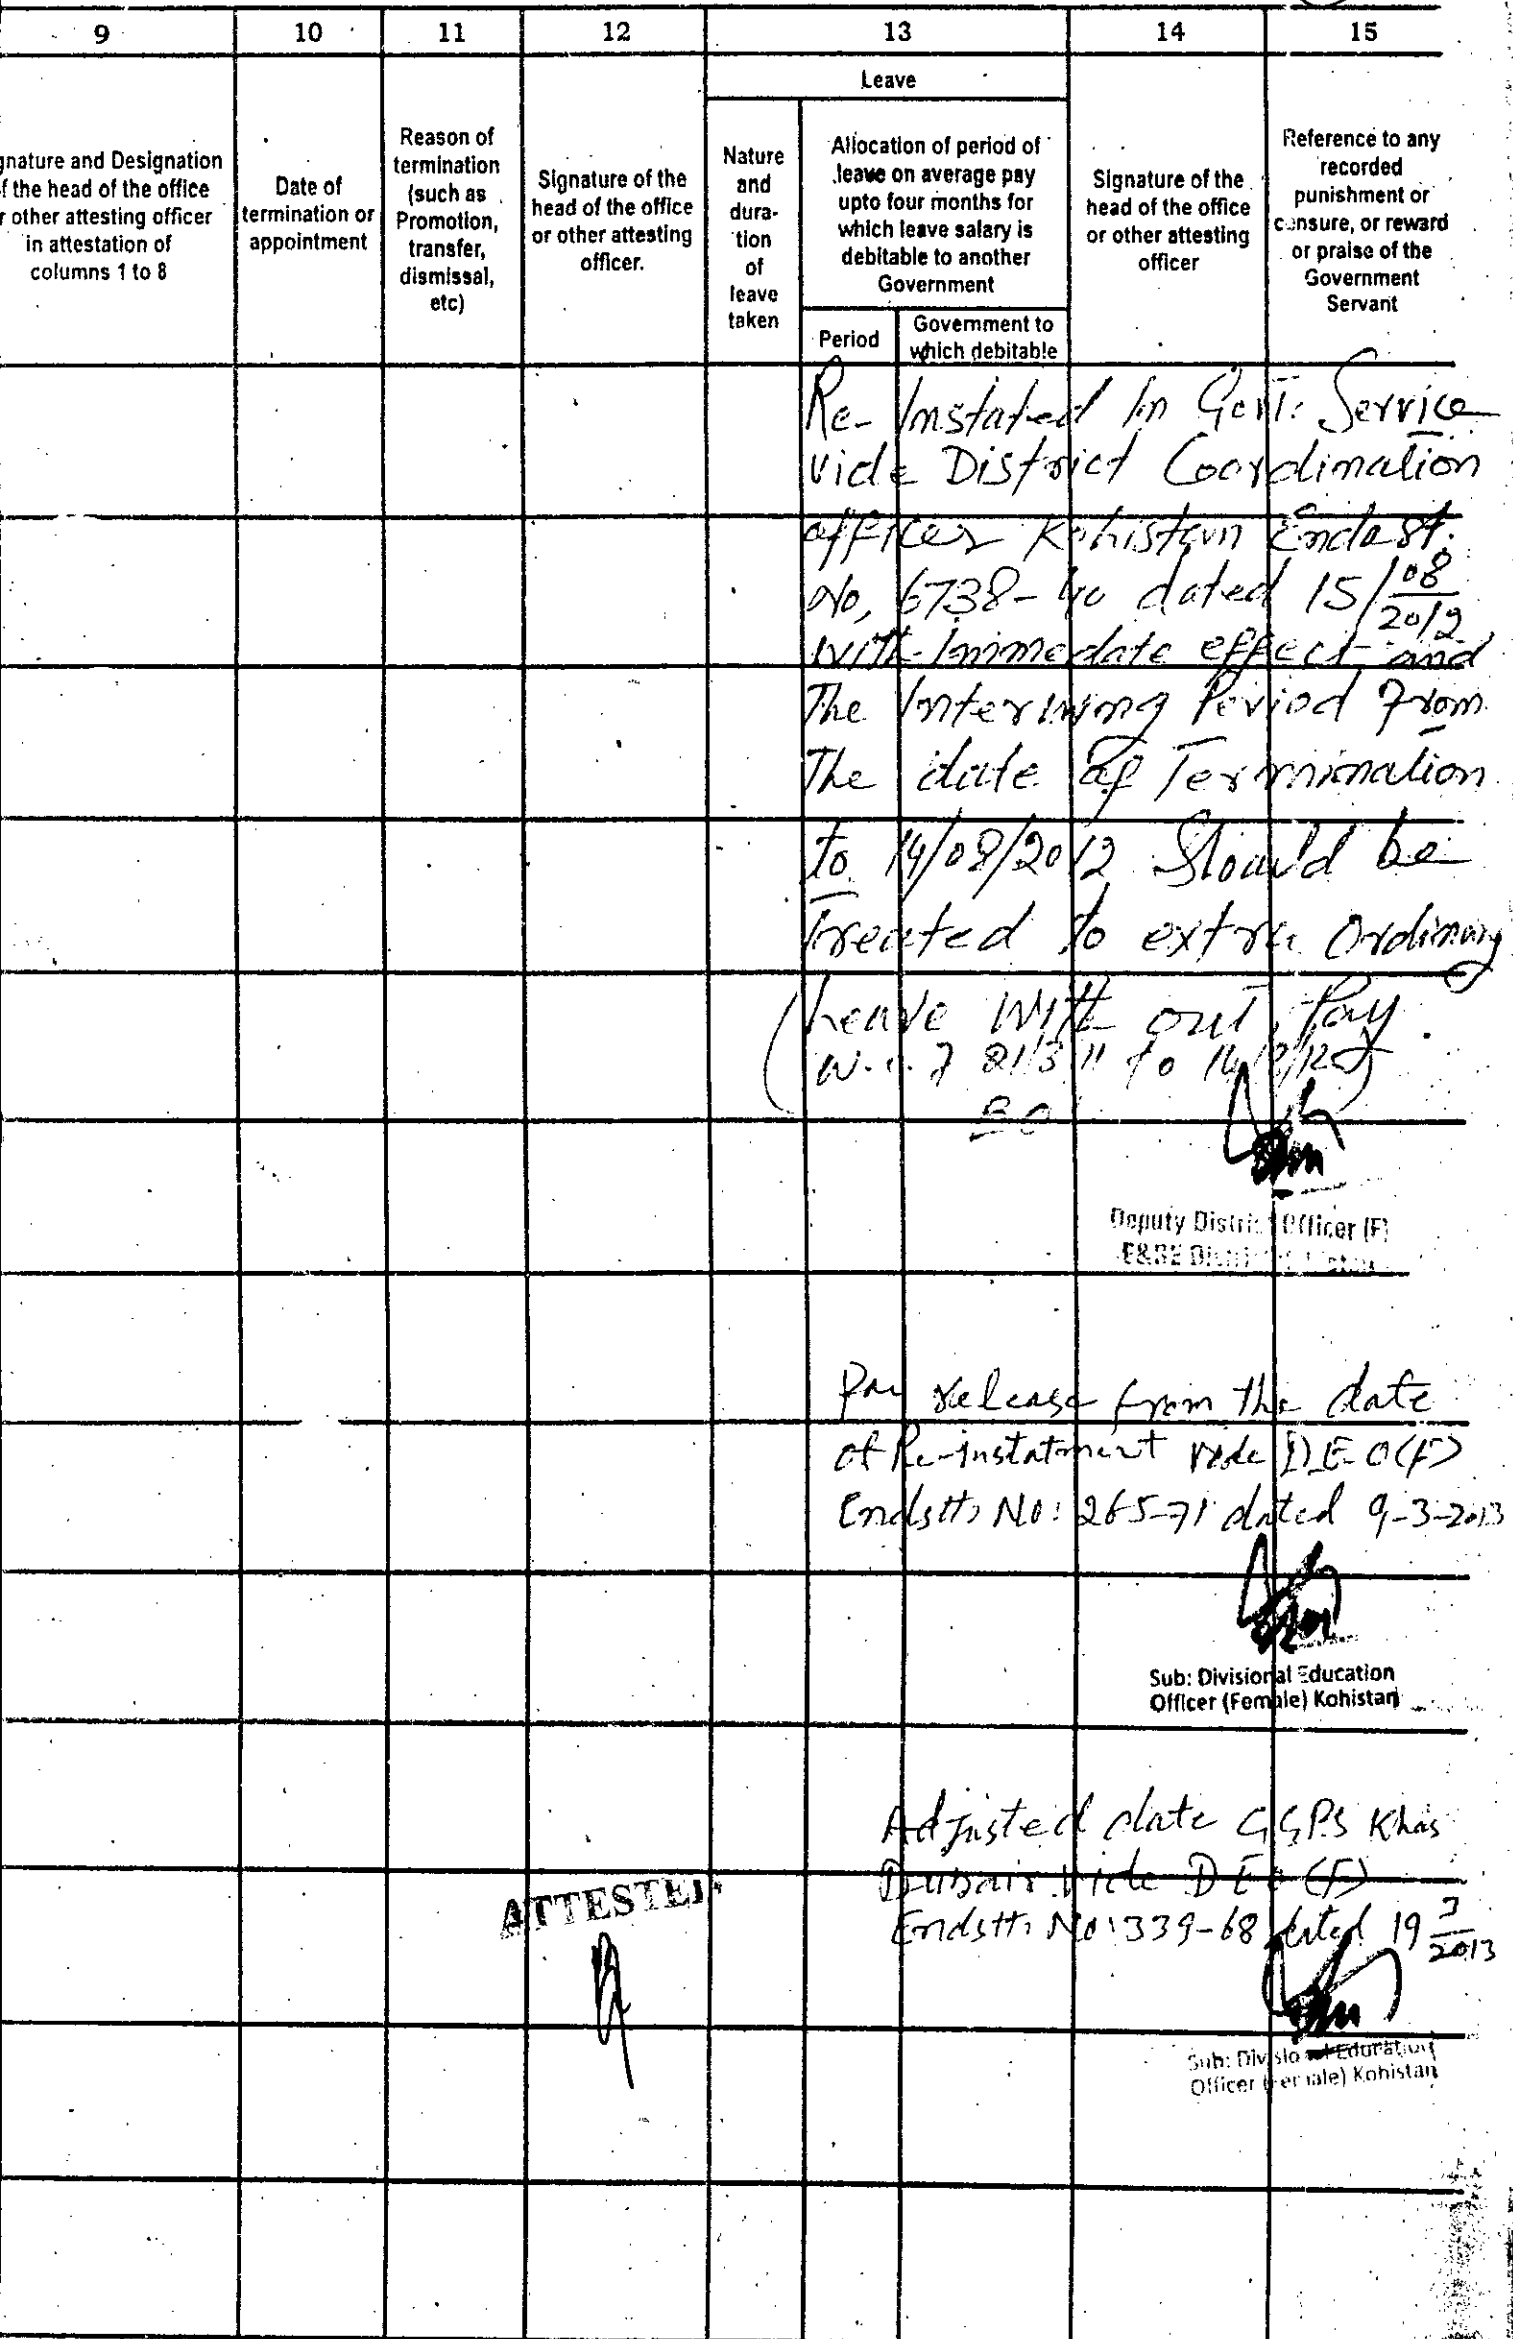 9 10 11 12 13 14 15
Leave
gnature and Designation
f the head of the office
r other attesting officer
in attestation of
columns 1 to 8
Date of
termination or
appointment
Reason of
termination
(such as
Promotion,
transfer,
dismissal,
etc)
Signature of the
head of the office
or other attesting
officer.
Nature
and
dura-
tion
of
leave
taken
Allocation of period of
leave on average pay
upto four months for
which leave salary is
debitable to another
Government
Period
Government to
which debitable
Signature of the
head of the office
or other attesting
officer
Reference to any
recorded
punishment or
censure, or reward
or praise of the
Government
Servant
Re-Instated In Govt: Service
vide District Coordination
officer Kohistan Endast:
No, 6738-40 dated 15/08/2012
with Immedate effect and
The Interining Period From
The date of Termination
to 14/08/2012 Should be
Treated to extra Ordinary
(Leave With out Pay
to 14/8/12)
Deputy District Officer (F)
E&SE
Pay release from the date
of Re-instatment vide D.E.O(F)
Endstt: No: 265-71 dated 9-3-2013
Sub: Divisional Education
Officer (Female) Kohistan
Adjusted date GGPS Khas
Dubair vide DEO (F)
Endstt: No: 339-68 dated 19 3/2013
ATTESTED
Sub: Divisional Education
Officer (Female) Kohistan